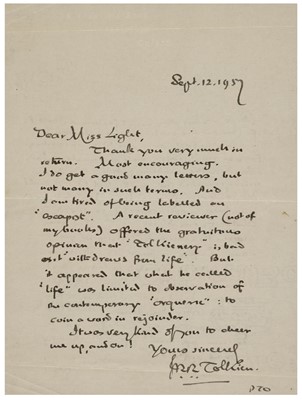 Sept. 12. 1957
Dear Miss Light,
Thank you very much in
return. Most encouraging.
I do get a good many letters, but
not many in such terms. And
I am tired of being labelled an
"escapist". A recent reviewer (not of
my books) offered the gratuitous
opinion that "Tolkienery" is bad
as it "withdraws from life". But
it appeared that what he called
"life" was limited to observation of
the contemporary "orquerie": to
coin a word in rejoinder.
It was very kind of you to cheer
me up, and on!
Yours sincerely
J.R.R. Tolkien.
PTO